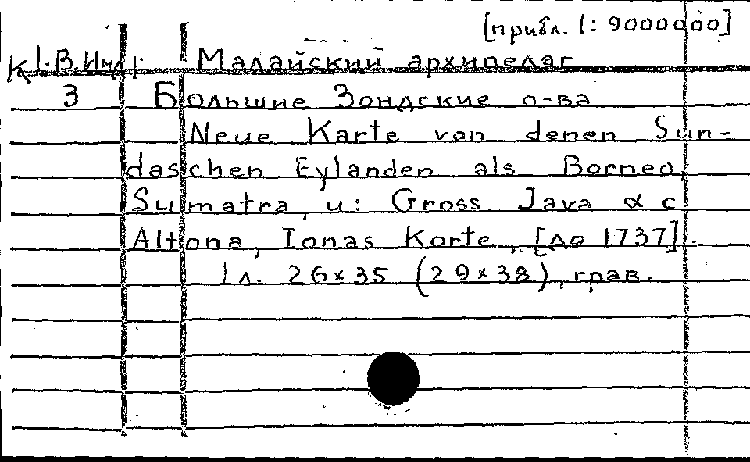 [прибл. 1: 9000000]
К 1.В.Инд. Малайский архипелаг
3 Большие Зондские о-ва
Neue Karte von denen Sun-
daschen Eylanden als Borneo,
Sumatra, u: Gross Java &c
Altona, Ionas Korte, [до 1737].
1 л. 26×35 (29×38), грав.